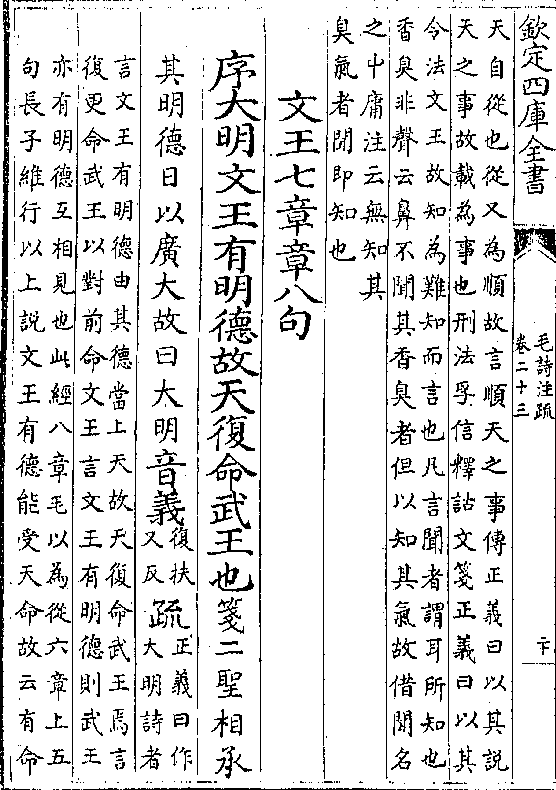 欽定四庫全書
毛詩注疏
卷二十三
天自從也從又為順故言順天之事傳正義曰以其説
天之事故載為事也刑法孚信釋詁文箋正義曰以其
令法文王故知為難知而言也凡言聞者謂耳所知也
香臭非聲云鼻不聞其香臭者但以知其氣故借聞名
之中庸注云無知其
臭氣者聞即知也
文王七章章八句
序大明文王有明德故天復命武王也箋二聖相承
其明德日以廣大故曰大明音義復扶
又反疏正義曰作
大明詩者
言文王有明德由其德當上天故天復命武王焉言
復更命武王以對前命文王言文王有明德則武王
亦有明德互相見也此經八章毛以為從六章上五
句長子維行以上説文王有德能受天命故云有命